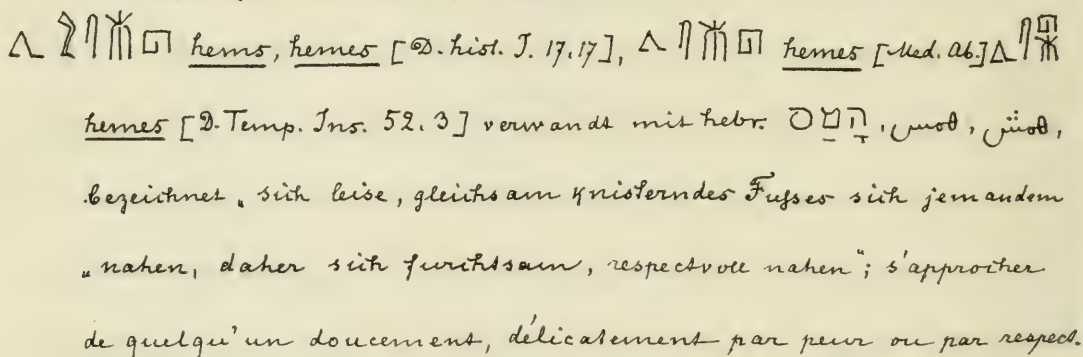 hems, hemes [D. hist. I. 17.17], hemes [Med. Ab.]
hemes [D. Temp. Ins. 52.3] verwandt mit hebr. הָמַס, همس, همش,
bezeichnet „sich leise, gleichsam knisterndes Fusses sich jemandem
„nahen, daher sich furchtsam, respectvoll nahen“; s'approcher
de quelqu'un doucement, délicatement par peur ou par respect.